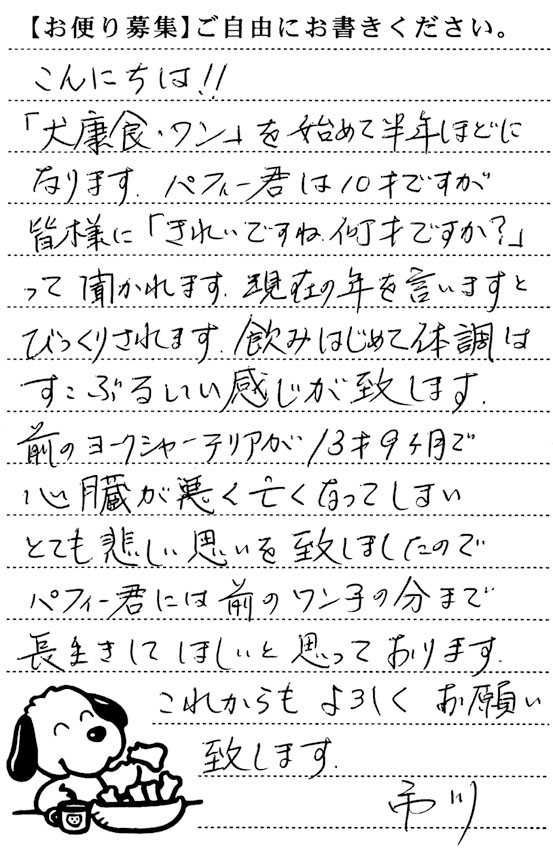 【お便り募集】ご自由にお書きください。
こんにちは!!
「犬康食・ワン」を始めて半年ほどに
なります. パフィー君は10才ですが
皆様に「きれいですね.何才ですか?」
って聞かれます. 現在の年を言いますと
びっくりされます. 飲みはじめて体調は
すこぶるいい感じが致します.
前のヨークシャーテリアが13才9ヶ月で
心臓が悪く亡くなってしまい
とても悲しい思いを致しましたので
パフィー君には前のワン子の分まで
長生きしてほしいと思っております.
これからもよろしくお願い
致します.
市川